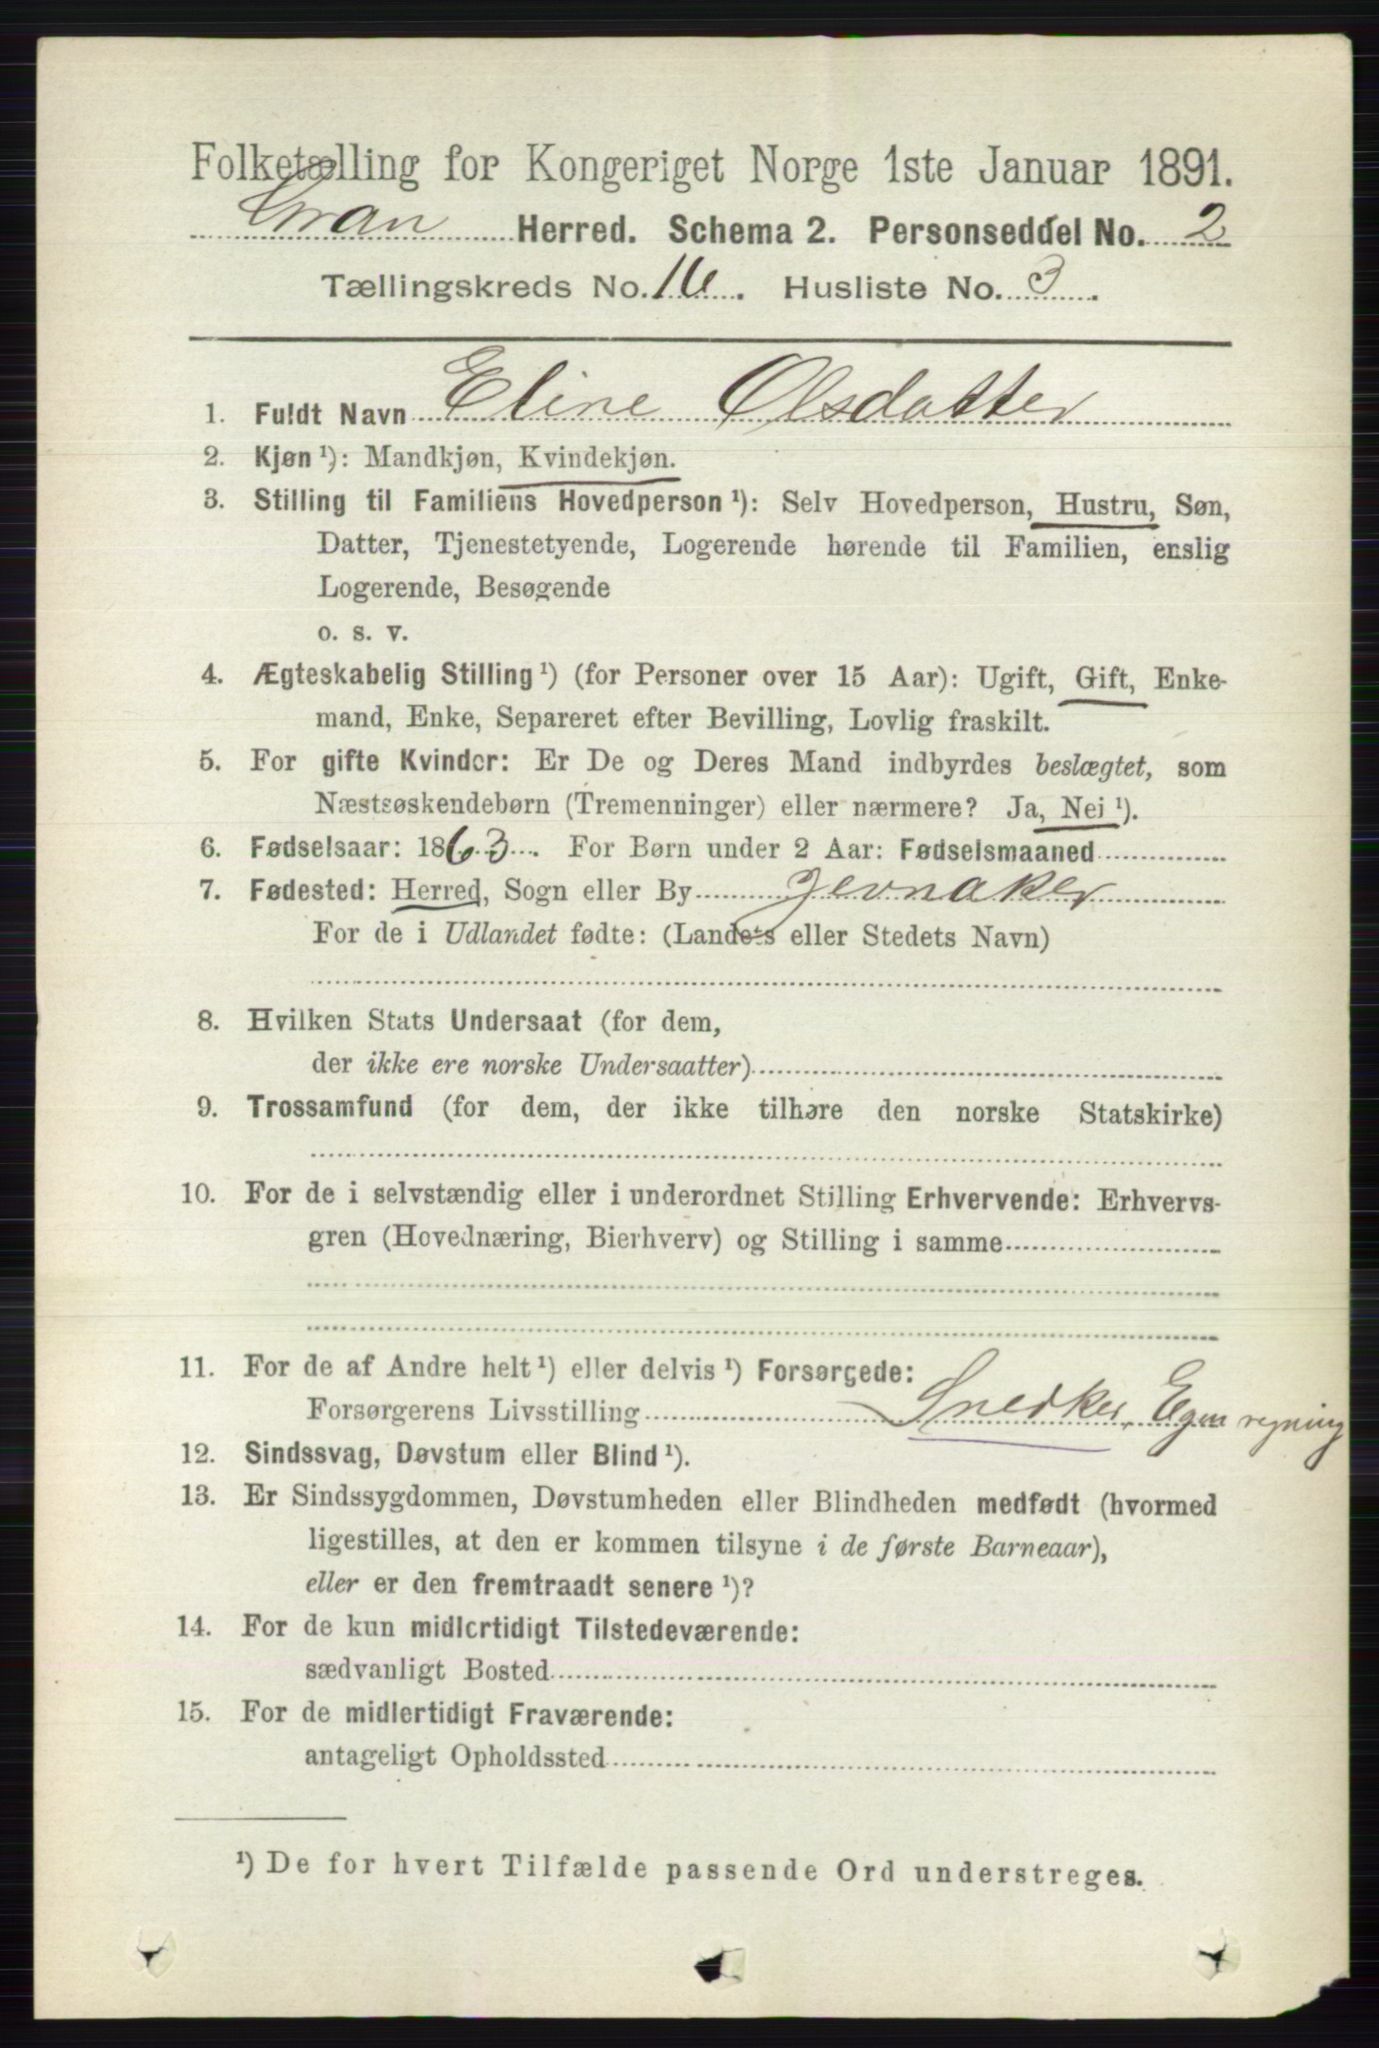 Folketælling for Kongeriget Norge 1ste Januar 1891.
Gran Herred. Schema 2. Personseddel No. 2
Tællingskreds No. 16. Husliste No. 3.
1. Fuldt Navn Eline Olsdatter
2. Kjøn ¹): Mandkjøn, Kvindekjøn.
3. Stilling til Familiens Hovedperson ¹): Selv Hovedperson, Hustru, Søn,
Datter, Tjenestetyende, Logerende hørende til Familien, enslig
Logerende, Besøgende
o. s. v.
4. Ægteskabelig Stilling ¹) (for Personer over 15 Aar): Ugift, Gift, Enke-
mand, Enke, Separeret efter Bevilling, Lovlig fraskilt.
5. For gifte Kvinder: Er De og Deres Mand indbyrdes beslægtet, som
Næstsøskendebørn (Tremenninger) eller nærmere? Ja, Nei ¹).
6. Fødselsaar: 1863. For Børn under 2 Aar: Fødselsmaaned
7. Fødested: Herred, Sogn eller By Jevnaker
For de i Udlandet fødte: (Landets eller Stedets Navn)
8. Hvilken Stats Undersaat (for dem,
der ikke ere norske Undersaatter)
9. Trossamfund (for dem, der ikke tilhøre den norske Statskirke)
10. For de i selvstændig eller i underordnet Stilling Erhvervende: Erhvervs-
gren (Hovednæring, Bierhverv) og Stilling i samme
11. For de af Andre helt ¹) eller delvis ¹) Forsørgede:
Forsørgerens Livsstilling Snedker, Egen regning
12. Sindssvag, Døvstum eller Blind ¹).
13. Er Sindssygdommen, Døvstumheden eller Blindheden medfødt (hvormed
ligestilles, at den er kommen tilsyne i de første Barneaar),
eller er den fremtraadt senere ¹)?
14. For de kun midlertidigt Tilstedeværende:
sædvanligt Bosted
15. For de midlertidigt Fraværende:
antageligt Opholdssted
¹) De for hvert Tilfælde passende Ord understreges.